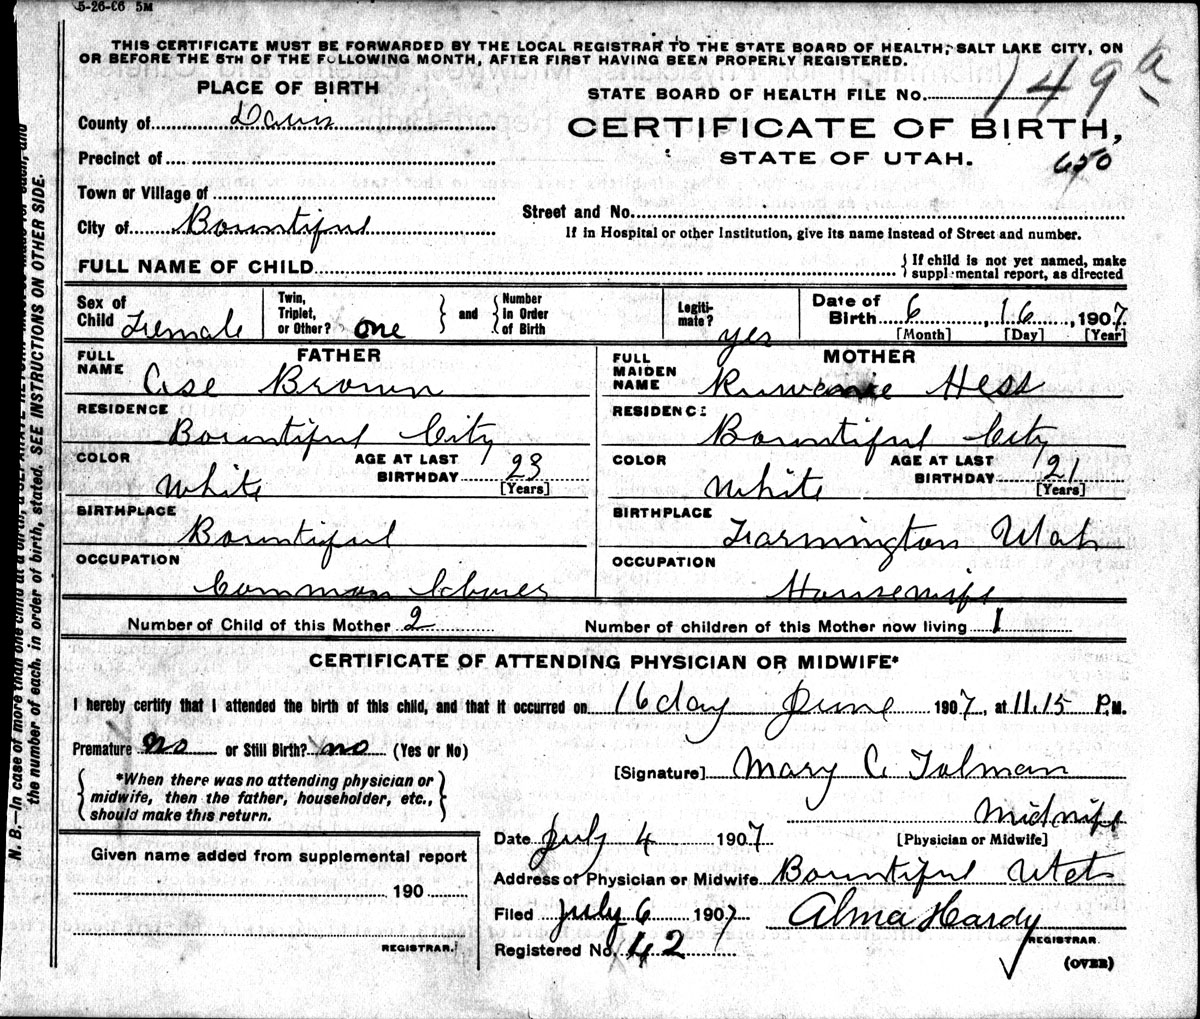 5-26-06 5M
THIS CERTIFICATE MUST BE FORWARDED BY THE LOCAL REGISTRAR TO THE STATE BOARD OF HEALTH, SALT LAKE CITY, ON
OR BEFORE THE 5TH OF THE FOLLOWING MONTH, AFTER FIRST HAVING BEEN PROPERLY REGISTERED.
PLACE OF BIRTH
STATE BOARD OF HEALTH FILE No. 149 a
County of Davis
CERTIFICATE OF BIRTH,
Precinct of
STATE OF UTAH. 650
Town or Village of
Street and No.
City of Bountiful
If in Hospital or other Institution, give its name instead of Street and number.
FULL NAME OF CHILD { If child is not yet named, make supplemental report, as directed
Sex of Child Female
Twin, Triplet, or Other? one } and { Number in Order of Birth
Legitimate? yes
Date of Birth 6, 16, 1907
[Month] [Day] [Year]
FATHER
FULL NAME Ase Brown
MOTHER
FULL MAIDEN NAME Ruwanie Hess
RESIDENCE Bountiful City
RESIDENCE Bountiful City
COLOR White AGE AT LAST BIRTHDAY 23 [Years]
COLOR White AGE AT LAST BIRTHDAY 21 [Years]
BIRTHPLACE Bountiful
BIRTHPLACE Farmington Utah
OCCUPATION Common
OCCUPATION Housewife
Number of Child of this Mother 2 Number of children of this Mother now living 1
CERTIFICATE OF ATTENDING PHYSICIAN OR MIDWIFE*
I hereby certify that I attended the birth of this child, and that it occurred on 16 day June 1907, at 11.15 P.M.
Premature no or Still Birth? no (Yes or No)
[Signature] Mary C Tolman
{ *When there was no attending physician or
midwife, then the father, householder, etc.,
should make this return. }
Midwife
[Physician or Midwife]
Date July 4 1907
Given name added from supplemental report
190
REGISTRAR.
Address of Physician or Midwife Bountiful Utah
Filed July 6 1907 Alma Hardy
REGISTRAR.
Registered No. 42
(OVER)
N. B.—In case of more than one child at a birth, a SEPARATE RETURN must be made for each, and
the number of each, in order of birth, stated. SEE INSTRUCTIONS ON OTHER SIDE.